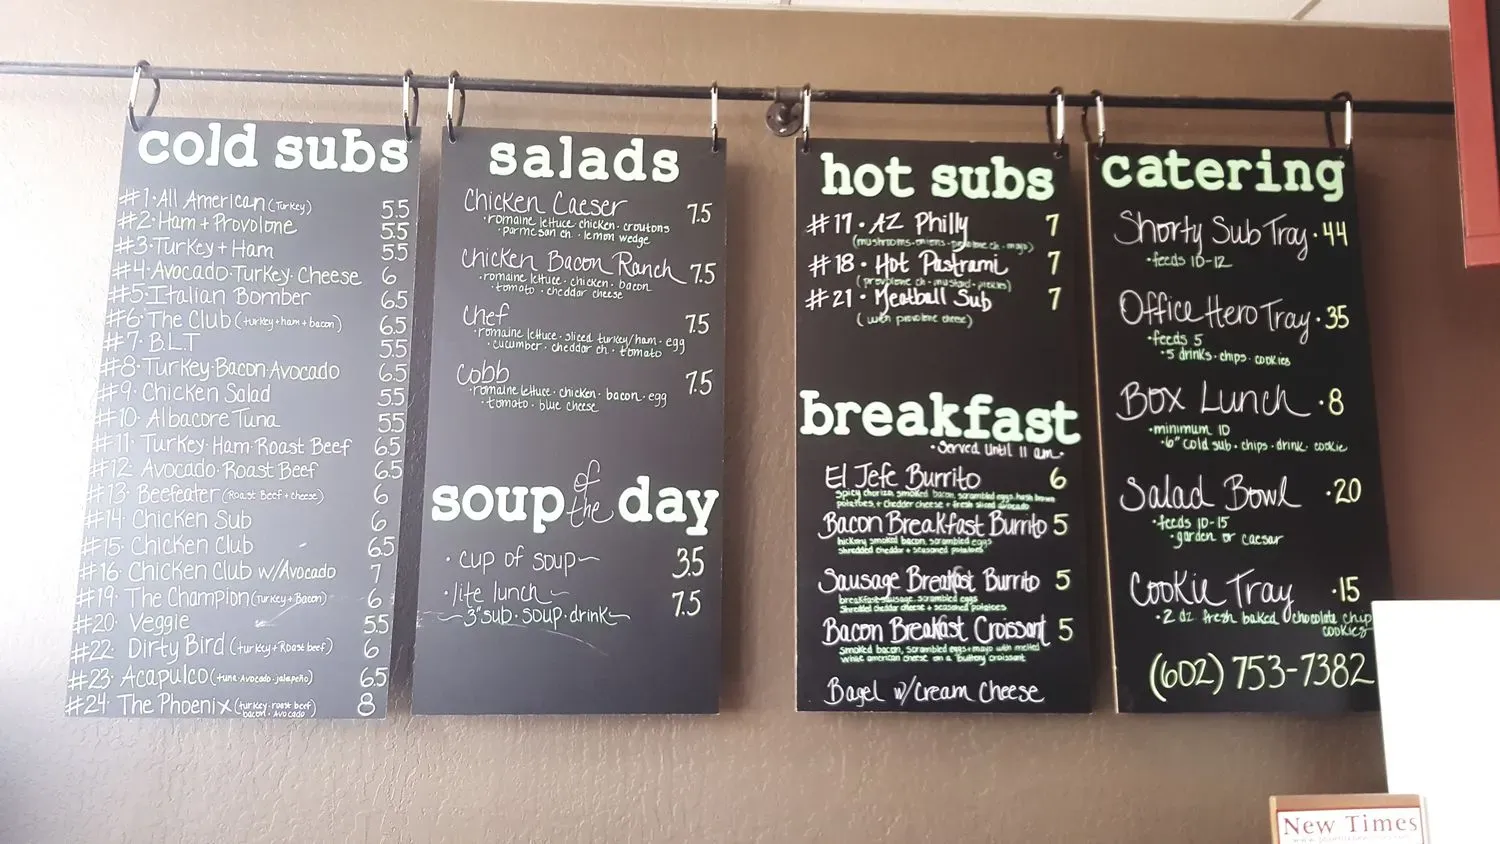 cold subs
#1·All American (Turkey) 5.5
#2·Ham + Provolone 5.5
#3·Turkey + Ham 5.5
#4·Avocado·Turkey·Cheese 6
#5·Italian Bomber 6.5
#6·The Club (turkey+ham+bacon) 6.5
#7·B.L.T 5.5
#8·Turkey·Bacon·Avocado 6.5
#9·Chicken Salad 5.5
#10·Albacore Tuna 5.5
#11·Turkey·Ham·Roast Beef 6.5
#12·Avocado·Roast Beef 6.5
#13·Beefeater (Roast Beef + cheese) 6
#14·Chicken Sub 6
#15·Chicken Club 6.5
#16·Chicken Club w/Avocado 7
#19·The Champion (Turkey + Bacon) 6
#20·Veggie 5.5
#22·Dirty Bird (turkey + Roast beef) 6
#23·Acapulco (tuna·Avocado·jalapeño) 6.5
#24·The Phoenix (turkey·roast beef) 8
bacon·Avocado
salads
Chicken Caeser 7.5
·romaine lettuce·chicken·croutons
·parmesan ch.·lemon wedge
Chicken Bacon Ranch 7.5
·romaine lettuce·chicken·bacon
·tomato·cheddar cheese
Chef 7.5
·romaine lettuce·sliced turkey/ham·egg
·cucumber·cheddar ch.·tomato
Cobb 7.5
·romaine lettuce·chicken·bacon·egg
·tomato·blue cheese
soup of the day
·cup of soup~ 3.5
·lite lunch~ 7.5
~3"sub·soup·drink~
hot subs
#17·AZ Philly 7
(mushrooms·onions·provolone ch·mayo)
#18·Hot Pastrami 7
(provolone ch·mustard·pickles)
#21·Meatball Sub 7
(with provolone cheese)
breakfast
·Served Until 11 am·
El Jefe Burrito 6
spicy chorizo, smoked bacon, scrambled eggs, hash brown
potatoes, + cheddar cheese + fresh sliced avocado
Bacon Breakfast Burrito 5
hickory smoked bacon, scrambled eggs
shredded cheddar + seasoned potatoes
Sausage Breakfast Burrito 5
breakfast sausage, scrambled eggs
Shredded cheddar cheese + seasoned potatoes
Bacon Breakfast Croissant 5
smoked bacon, scrambled eggs + mayo with melted
white american cheese on a buttery croissant
Bagel w/Cream Cheese
catering
Shorty Sub Tray·44
·feeds 10-12
Office Hero Tray·35
·feeds 5
·5 drinks·chips·cookies
Box Lunch·8
·minimum 10
·6" cold sub·chips·drink·cookie
Salad Bowl ·20
·feeds 10-15
·garden or caesar
Cookie Tray ·15
·2 dz fresh baked chocolate chip
cookies
(602) 753-7382
New Times